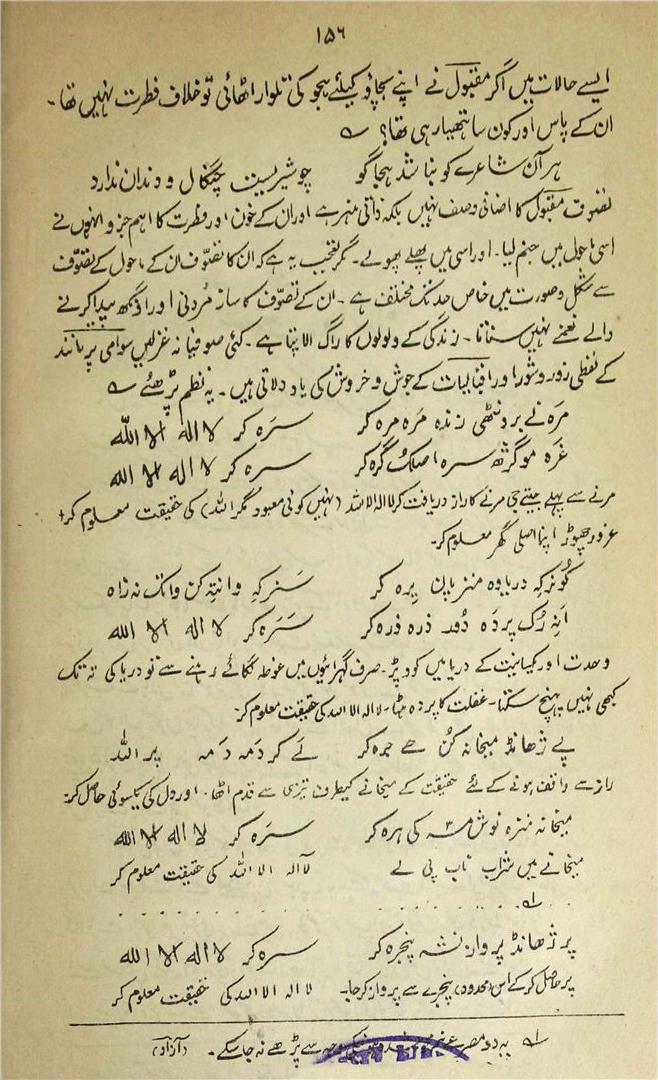 ۱۵۶
ایسے حالات میں اگر مقبول نے اپنے بچاؤ کیلئے ہجو کی تلوار اٹھائی تو خلاف فطرت نہیں تھا۔
ان کے پاس اور کون سا ہتھیار ہی تھا؟
ہر آن شاعرے کو بنا شد ہجا گو چو شیریست چنگال و دندان ندارد
تصوف مقبول کا اضافی وصف نہیں بلکہ ذاتی منہر ہے اور ان کے خون اور فطرت کا اہم جز و انہوں نے
اسی ماحول میں جنم لیا۔ اور اسی میں پھلے پھولے۔ مگر تعجب یہ ہے کہ ان کا تصوف ان کے ماحول کے تصوف
سے شکل و صورت میں خاص حد تک مختلف ہے۔ ان کے تصوف کا ساز مُردنی اور اونگھ پیدا کرنے
والے نغمے نہیں سناتا۔ زندگی کے ولولوں کا راگ الاپتا ہے۔ کئی صوفیانہ غزلیں سوامی پرمانند
کے لفظی زور و شور اور اقبالیات کے جوش و خروش کی یاد دلاتی ہیں۔ یہ نظم پڑھئے
مَرہ نے برونٹھی زندہ مَرہ مرہ کر سَرہ کر لا الہ الا اللہ
غَرہ موگژھ سرہ اصلک گَرہ کر سرہ کر لا الہ الا اللہ
مرنے سے پہلے جیتے جی مرنے کا راز دریافت کر لا الہ الا اللہ (نہیں کوئی معبود مگر اللہ) کی حقیقت معلوم کر۔
غرور چھوڑ اپنا اصلی گھر معلوم کر۔
دریاوہ منز پان پرہ کر کن وانتھ نہ زاہ
پردہ دُور ذرہ ذرہ کر سَرَہ کر لا الہ الا اللہ
وحدت اور یکسانیت کے دریا میں کود پڑ۔ صرف گہرائیوں میں غوطہ لگائے رہنے سے تو دریا کی تہ تک
کبھی نہیں پہنچ سکتا۔ غفلت کا پردہ ہٹا۔ لا الہ الا اللہ کی حقیقت معلوم کر۔
پے ژھانڈ میخانہ کُن کر دَمہ دَمہ پر اللہ
راز سے واقف ہونے کے لئے حقیقت کے میخانے کیطرف تیزی سے قدم اٹھا۔ اور دل کی یکسوئی حاصل کر۔
میخانہ منزہ نوش کر سَرہ کر لا الہ الا اللہ
میخانے میں شراب ناب پی لے لا الہ الا اللہ کی حقیقت معلوم کر
پر ژھانڈ پرواز پنجرہ کر سرہ کر لا الہ الا اللہ
پر حاصل کر کے اس (محدود) پنجرے سے پرواز کر جا۔ لا الہ الا اللہ کی حقیقت معلوم کر
یہ دو مصرعے وجہ سے پڑھے نہ جا سکے۔ (آزاد)